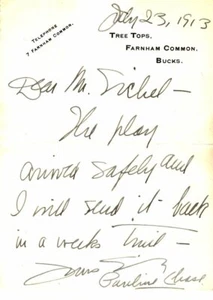 July 23, 1913
TELEPHONE
7 FARNHAM COMMON.
TREE TOPS,
FARNHAM COMMON.
BUCKS.
Dear Mr. Sichel –
The play
arrived safely and
I will send it back
in a weeks time –
Yours
Pauline Chase